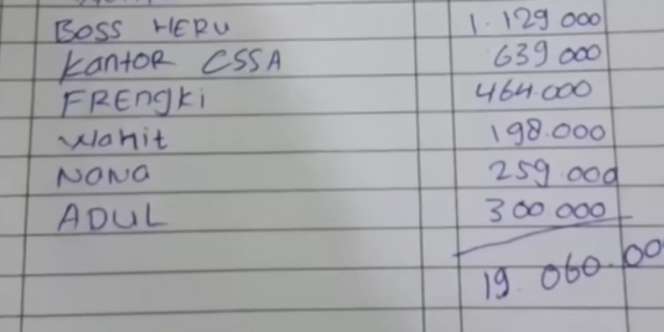 BOSS HERU 1.129 000
KantoR CSSA 639 000
FREngki 464.000
Wahit 198.000
NONA 259.000
ADUL 300 000
19.060.00